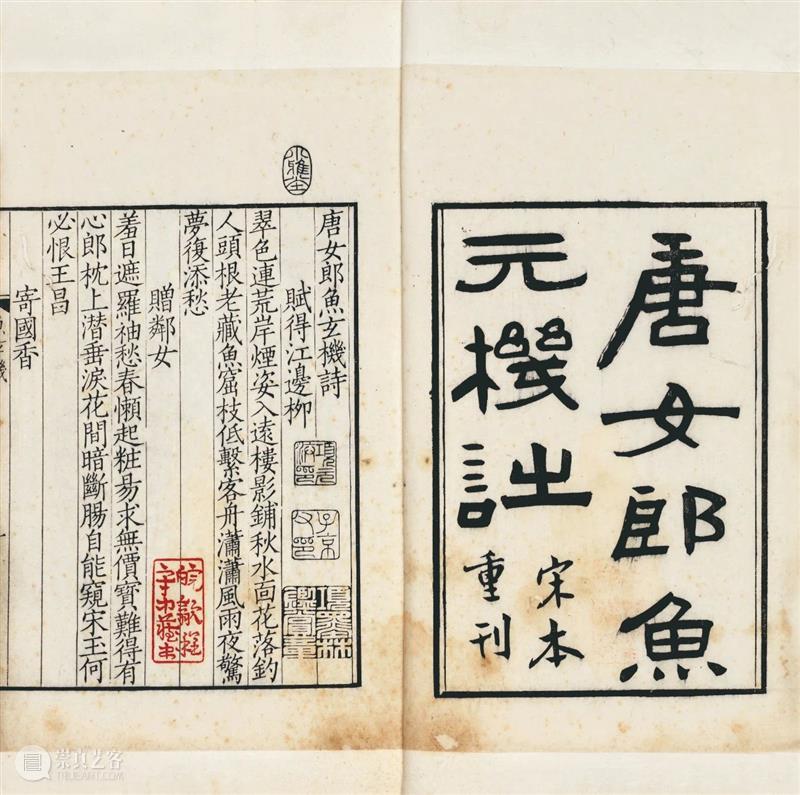 唐女郎魚
元機詩
宋本
重刊
唐女郎魚玄機詩
賦得江邊柳
翠色連荒岸煙姿入遠樓影鋪秋水面花落釣
人頭根老藏魚窟枝低繫客舟瀟瀟風雨夜驚
夢復添愁
贈鄰女
羞日遮羅袖愁春懶起粧易求無價寶難得有
心郎枕上潜垂淚花間暗斷腸自能窺宋玉何
必恨王昌
寄國香
魚玄機
項元汴印
子京父印
項墨林鑑賞章
皖歙程守中藏書
崇真艺客
TRUEART.COM